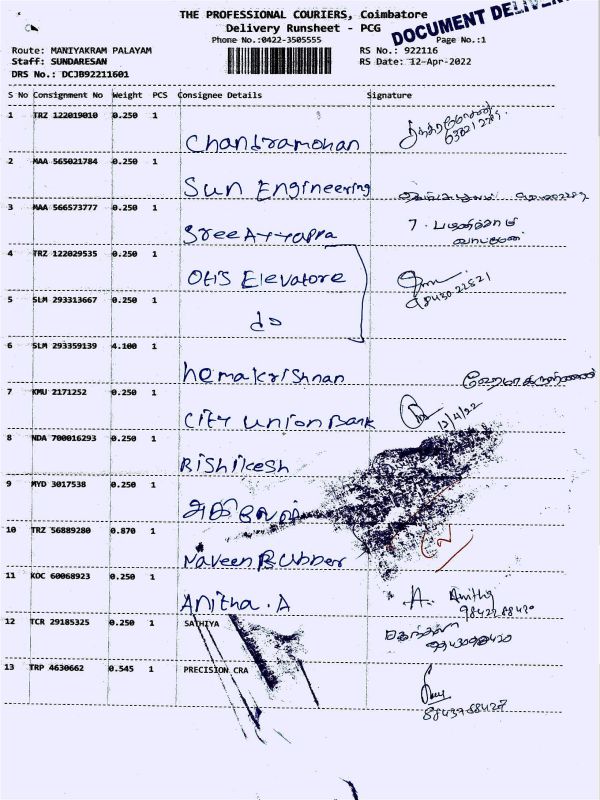 THE PROFESSIONAL COURIERS, Coimbatore
Delivery Runsheet - PCG
DOCUMENT
Phone No.:0422-3505555 Page No.:1
Route: MANIYAKRAM PALAYAM RS No.: 922116
Staff: SUNDARESAN RS Date: 12-Apr-2022
DRS No.: DCJB92211601
S No Consignment No Weight PCS Consignee Details Signature
1 TRZ 122019010 0.250 1
Chandramohan
2 MAA 565021784 0.250 1
Sun Engineering
3 MAA 566573777 0.250 1
Sree Ayyappa
7. பழனிச்சாமி
4 TRZ 122029535 0.250 1
Otis Elevatore
5 SLM 293313667 0.250 1
do
6 SLM 293359139 4.100 1
hemakrishnan
7 KMU 2171252 0.250 1
City Union Bank 12/4/22
8 NDA 700016293 0.250 1
Rishikesh
9 MYD 3017538 0.250 1
10 TRZ 56889280 0.870 1
Naveen Rubber
11 KOC 60068923 0.250 1
Anitha. A A. Anitha
12 TCR 29185325 0.250 1 SATHIYA
13 TRP 4630662 0.545 1 PRECISION CRA